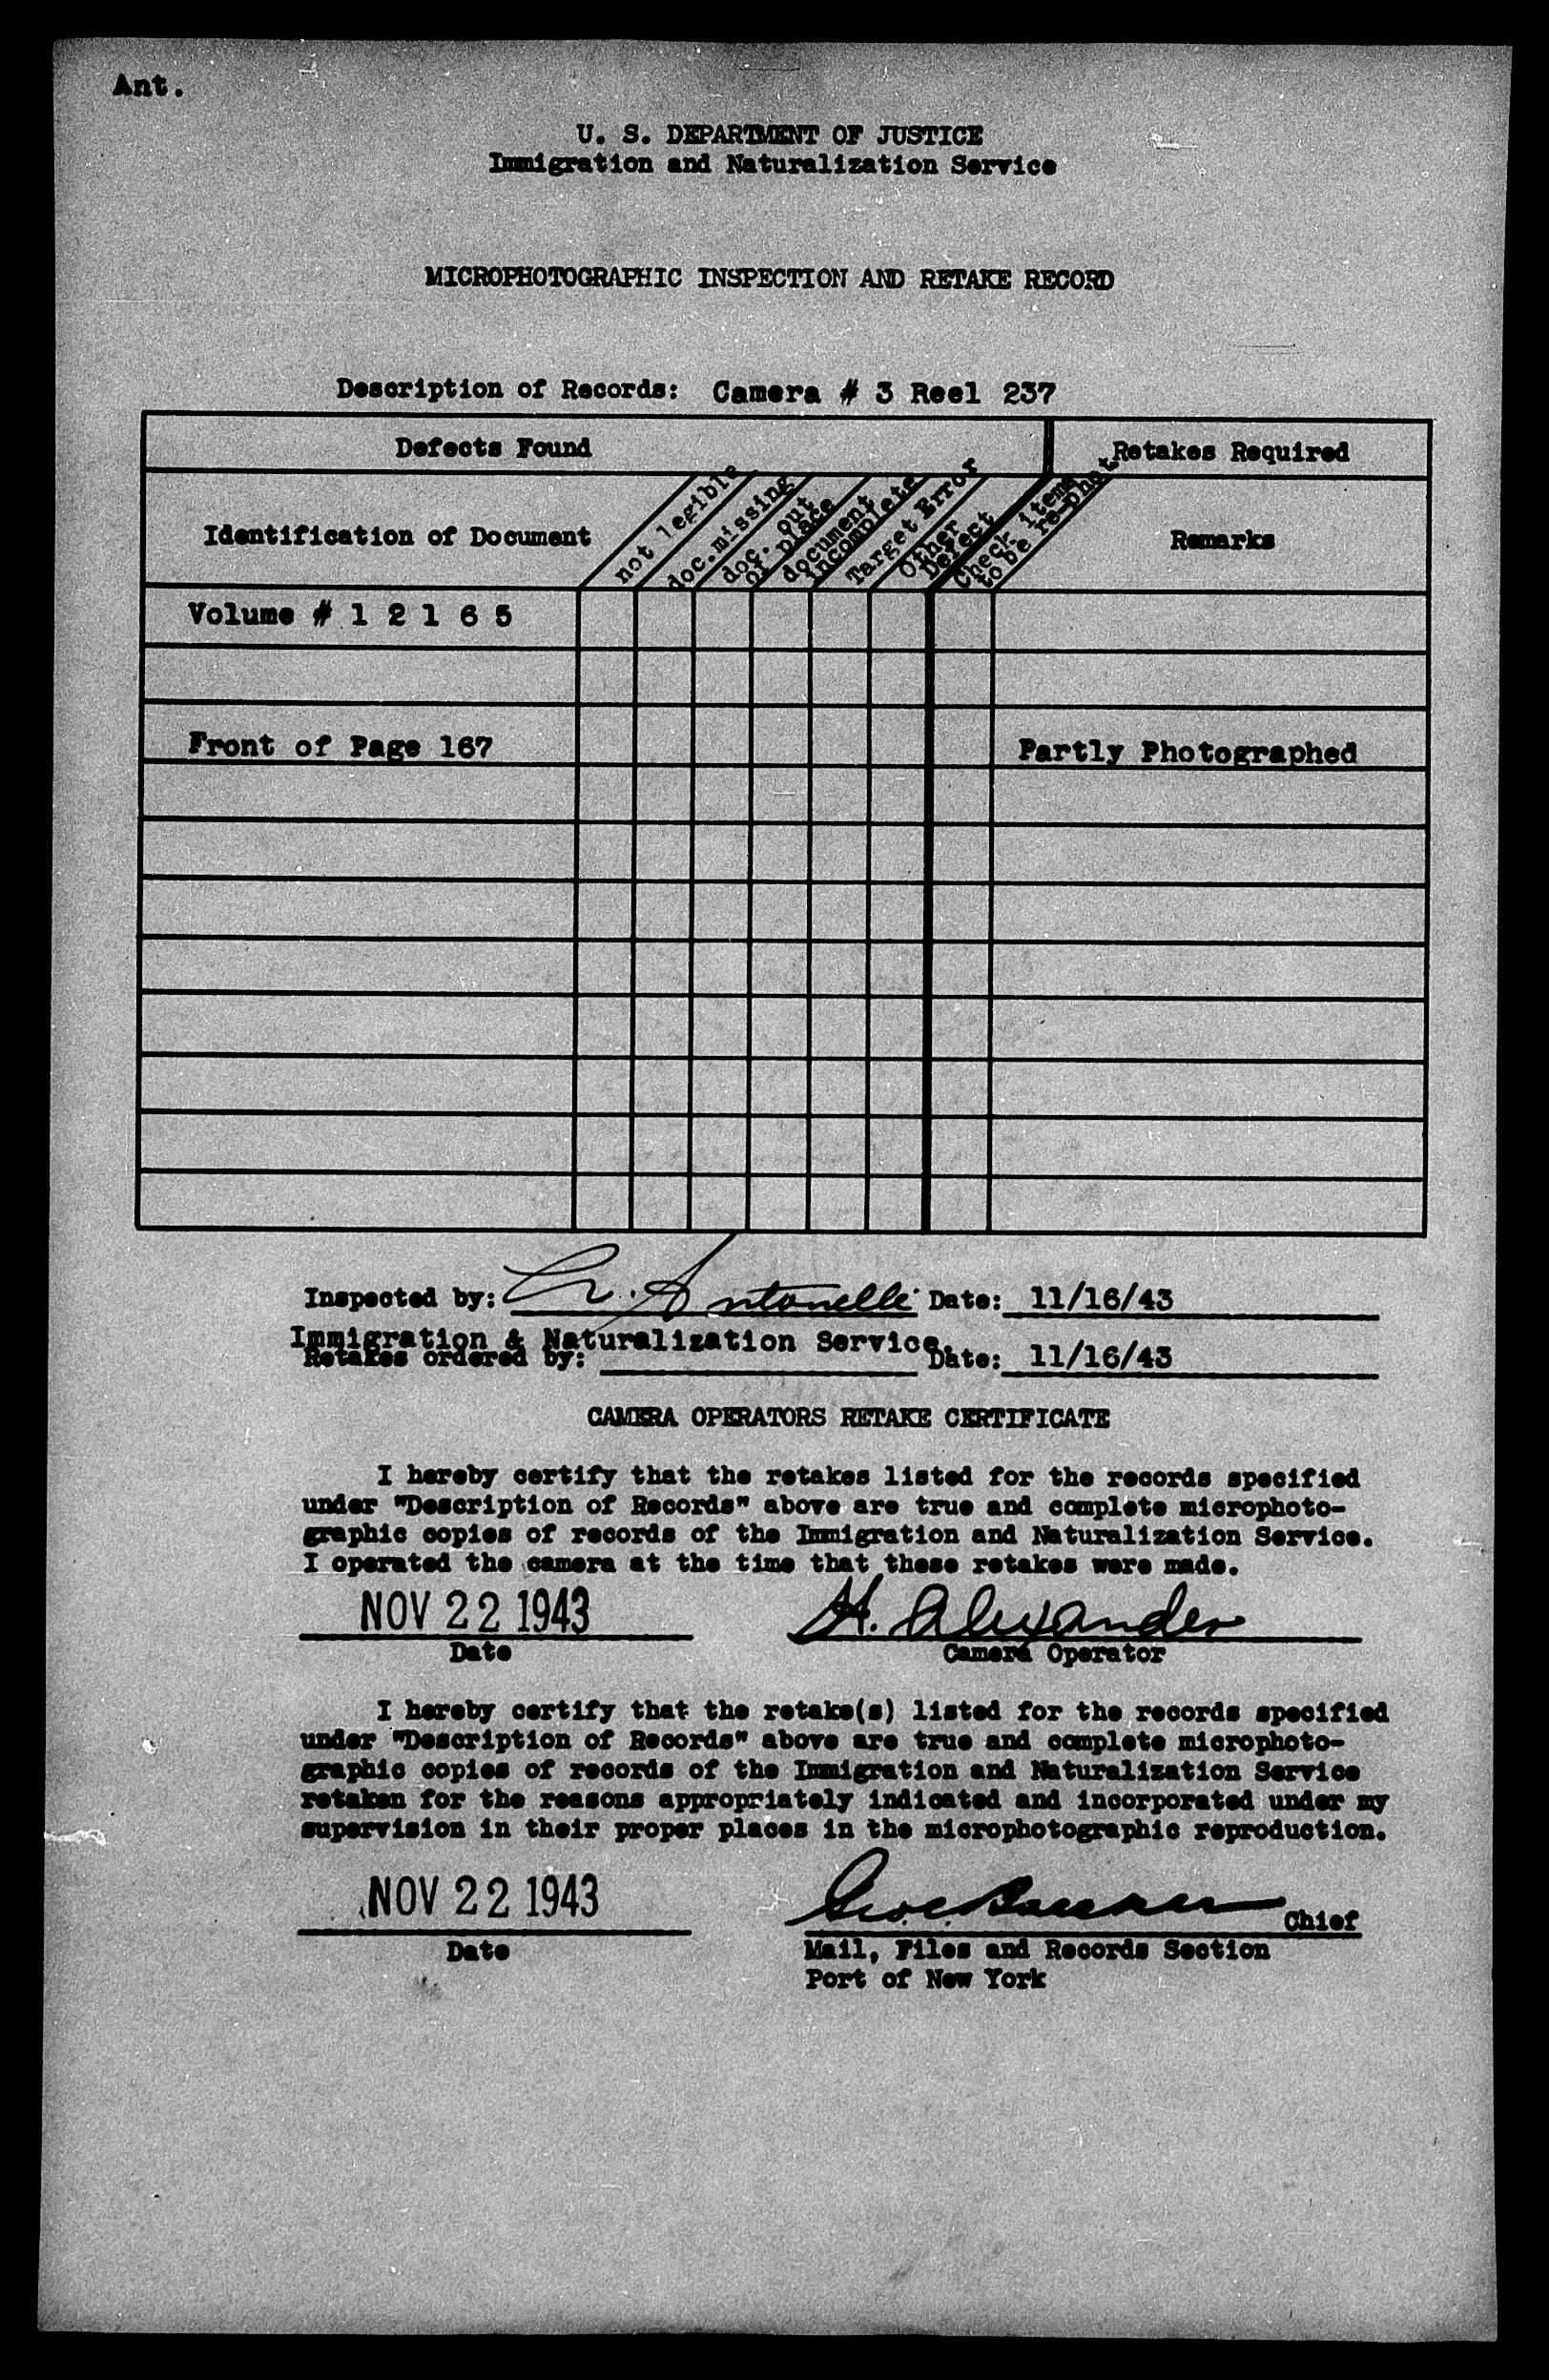 Ant.
U. S. DEPARTMENT OF JUSTICE
Immigration and Naturalization Service
MICROPHOTOGRAPHIC INSPECTION AND RETAKE RECORD
Description of Records: Camera # 3 Reel 237
Defects Found
Retakes Required
Identification of Document
not legible
doc. missing
doc. out
of place
document
incomplete
Target Error
Other
Defect
Check items
to be re-phot
Remarks
Volume # 1 2 1 6 5
Front of Page 167
Partly Photographed
Inspected by: Antonelli Date: 11/16/43
Immigration & Naturalization Service.
Retakes ordered by: Date: 11/16/43
CAMERA OPERATORS RETAKE CERTIFICATE
I hereby certify that the retakes listed for the records specified
under "Description of Records" above are true and complete microphoto-
graphic copies of records of the Immigration and Naturalization Service.
I operated the camera at the time that these retakes were made.
NOV 22 1943 H. Alexander
Date Camera Operator
I hereby certify that the retake(s) listed for the records specified
under "Description of Records" above are true and complete microphoto-
graphic copies of records of the Immigration and Naturalization Service
retaken for the reasons appropriately indicated and incorporated under my
supervision in their proper places in the microphotographic reproduction.
NOV 22 1943 Chief
Date Mail, Files and Records Section
Port of New York